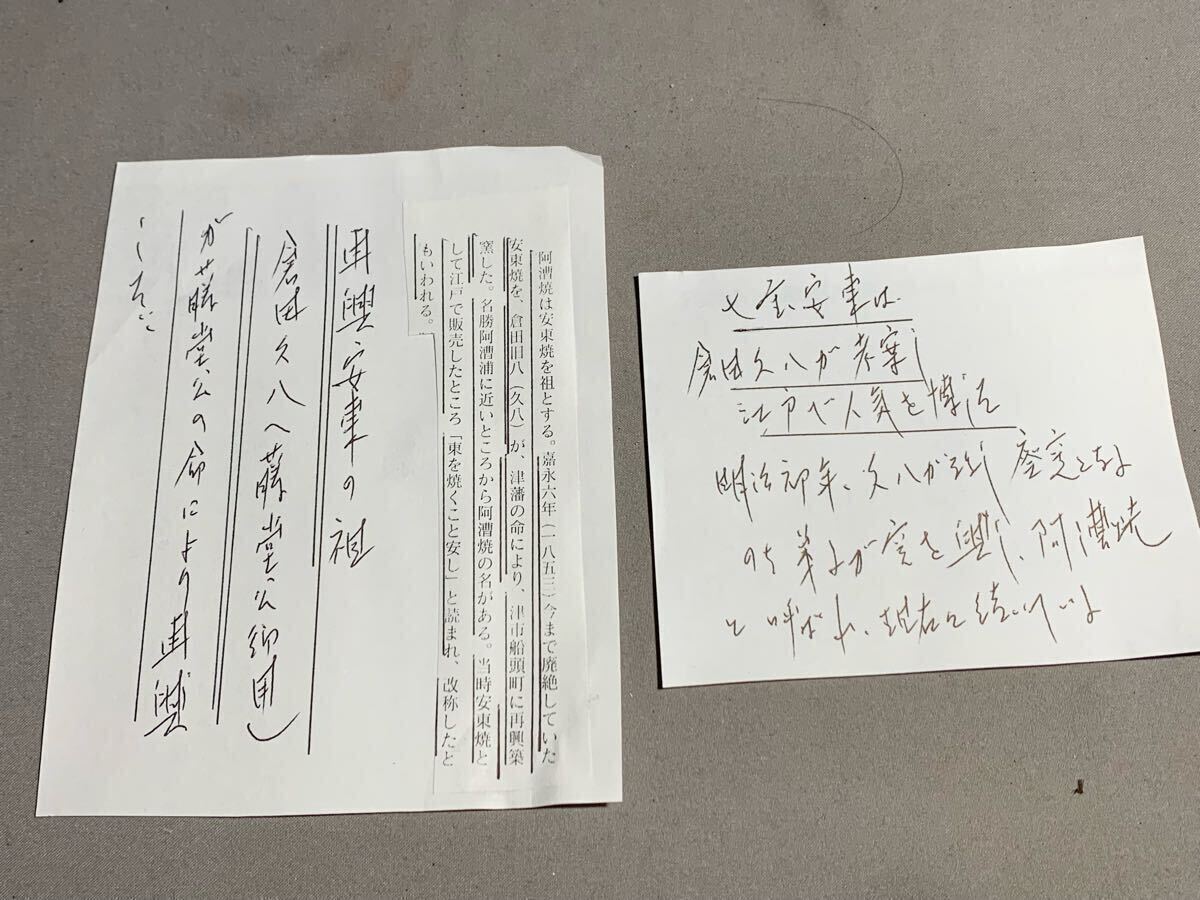 阿漕焼は安東焼を祖とする。嘉永六年(一八五三)今まで廃絶していた
安東焼を、倉田旧八(久八)が、津藩の命により、津市船頭町に再興築
窯した。名勝阿漕浦に近いところから阿漕焼の名がある。当時安東焼と
して江戸で販売したところ「東を焼くこと安し」と読まれ、改称したと
もいわれる。
再興安東の祖
倉田久八へ藤堂公御用)
が藤堂公の命により再興
した
安東は
倉田久八が考案し
江戸で人気を博した
明治初年、久八が 廃窯となる
のち弟子が窯を興し、阿漕焼
と呼ばれ、現在に続いている